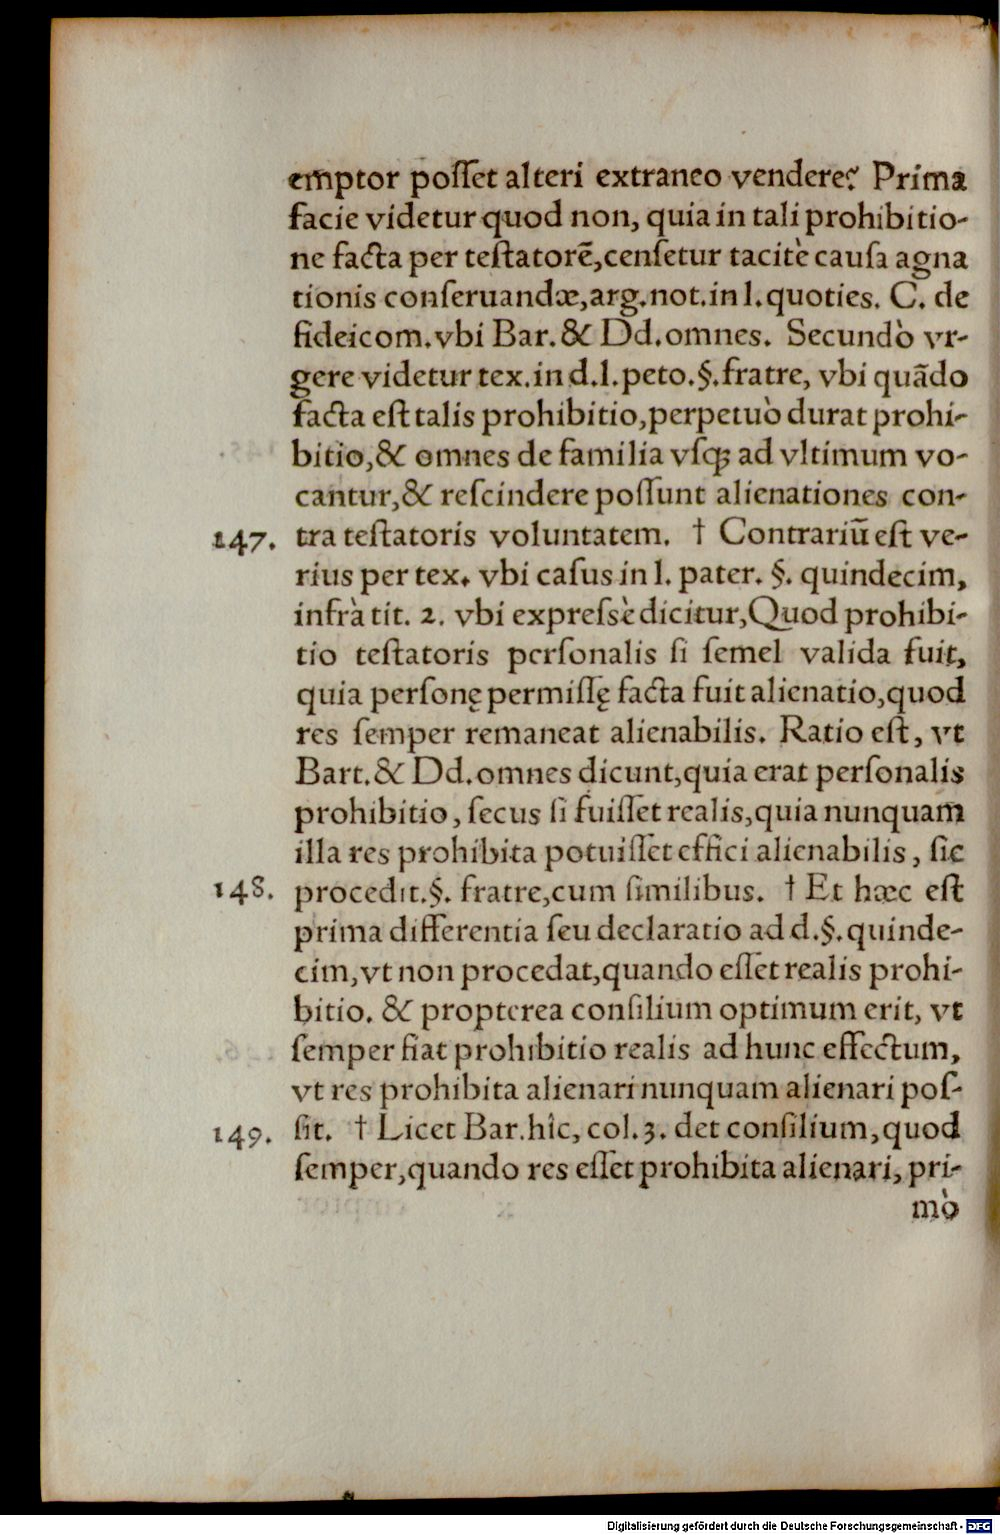 emptor poſſet alteri extraneo vendere? Prima
facie videtur quod non, quia in tali prohibitio-
ne facta per teſtatorē,cenſetur tacitè cauſa agna
tionis conſeruandæ,arg.not.in l.quoties. C. de
fideicom.vbi Bar.& Dd.omnes. Secundò vr-
gere videtur tex.in d.l.peto.§.fratre, vbi quādo
facta eſt talis prohibitio,perpetuò durat prohi-
bitio,& omnes de familia vſq; ad vltimum vo-
cantur,& reſcindere poſſunt alienationes con-
147. tra teſtatoris voluntatem. † Contrariū eſt ve-
rius per tex. vbi caſus in l. pater. §. quindecim,
infrà tit. 2. vbi expreſsè dicitur,Quod prohibi-
tio teſtatoris perſonalis ſi ſemel valida fuit,
quia perſonę permiſſę facta fuit alienatio,quod
res ſemper remaneat alienabilis. Ratio eſt, vt
Bart.& Dd.omnes dicunt,quia erat perſonalis
prohibitio, ſecus ſi fuiſſet realis,quia nunquam
illa res prohibita potuiſſet effici alienabilis, ſic
148. procedit.§. fratre,cum ſimilibus. † Et hæc eſt
prima differentia ſeu declaratio ad d.§.quinde-
cim,vt non procedat,quando eſſet realis prohi-
bitio. & propterea conſilium optimum erit, vt
ſemper fiat prohibitio realis ad hunc effectum,
vt res prohibita alienari nunquam alienari poſ-
149. ſit. † Licet Bar.hîc, col.3. det conſilium,quod
ſemper,quando res eſſet prohibita alienari, pri-
mò
Digitalisierung gefördert durch die Deutsche Forschungsgemeinschaft - DFG